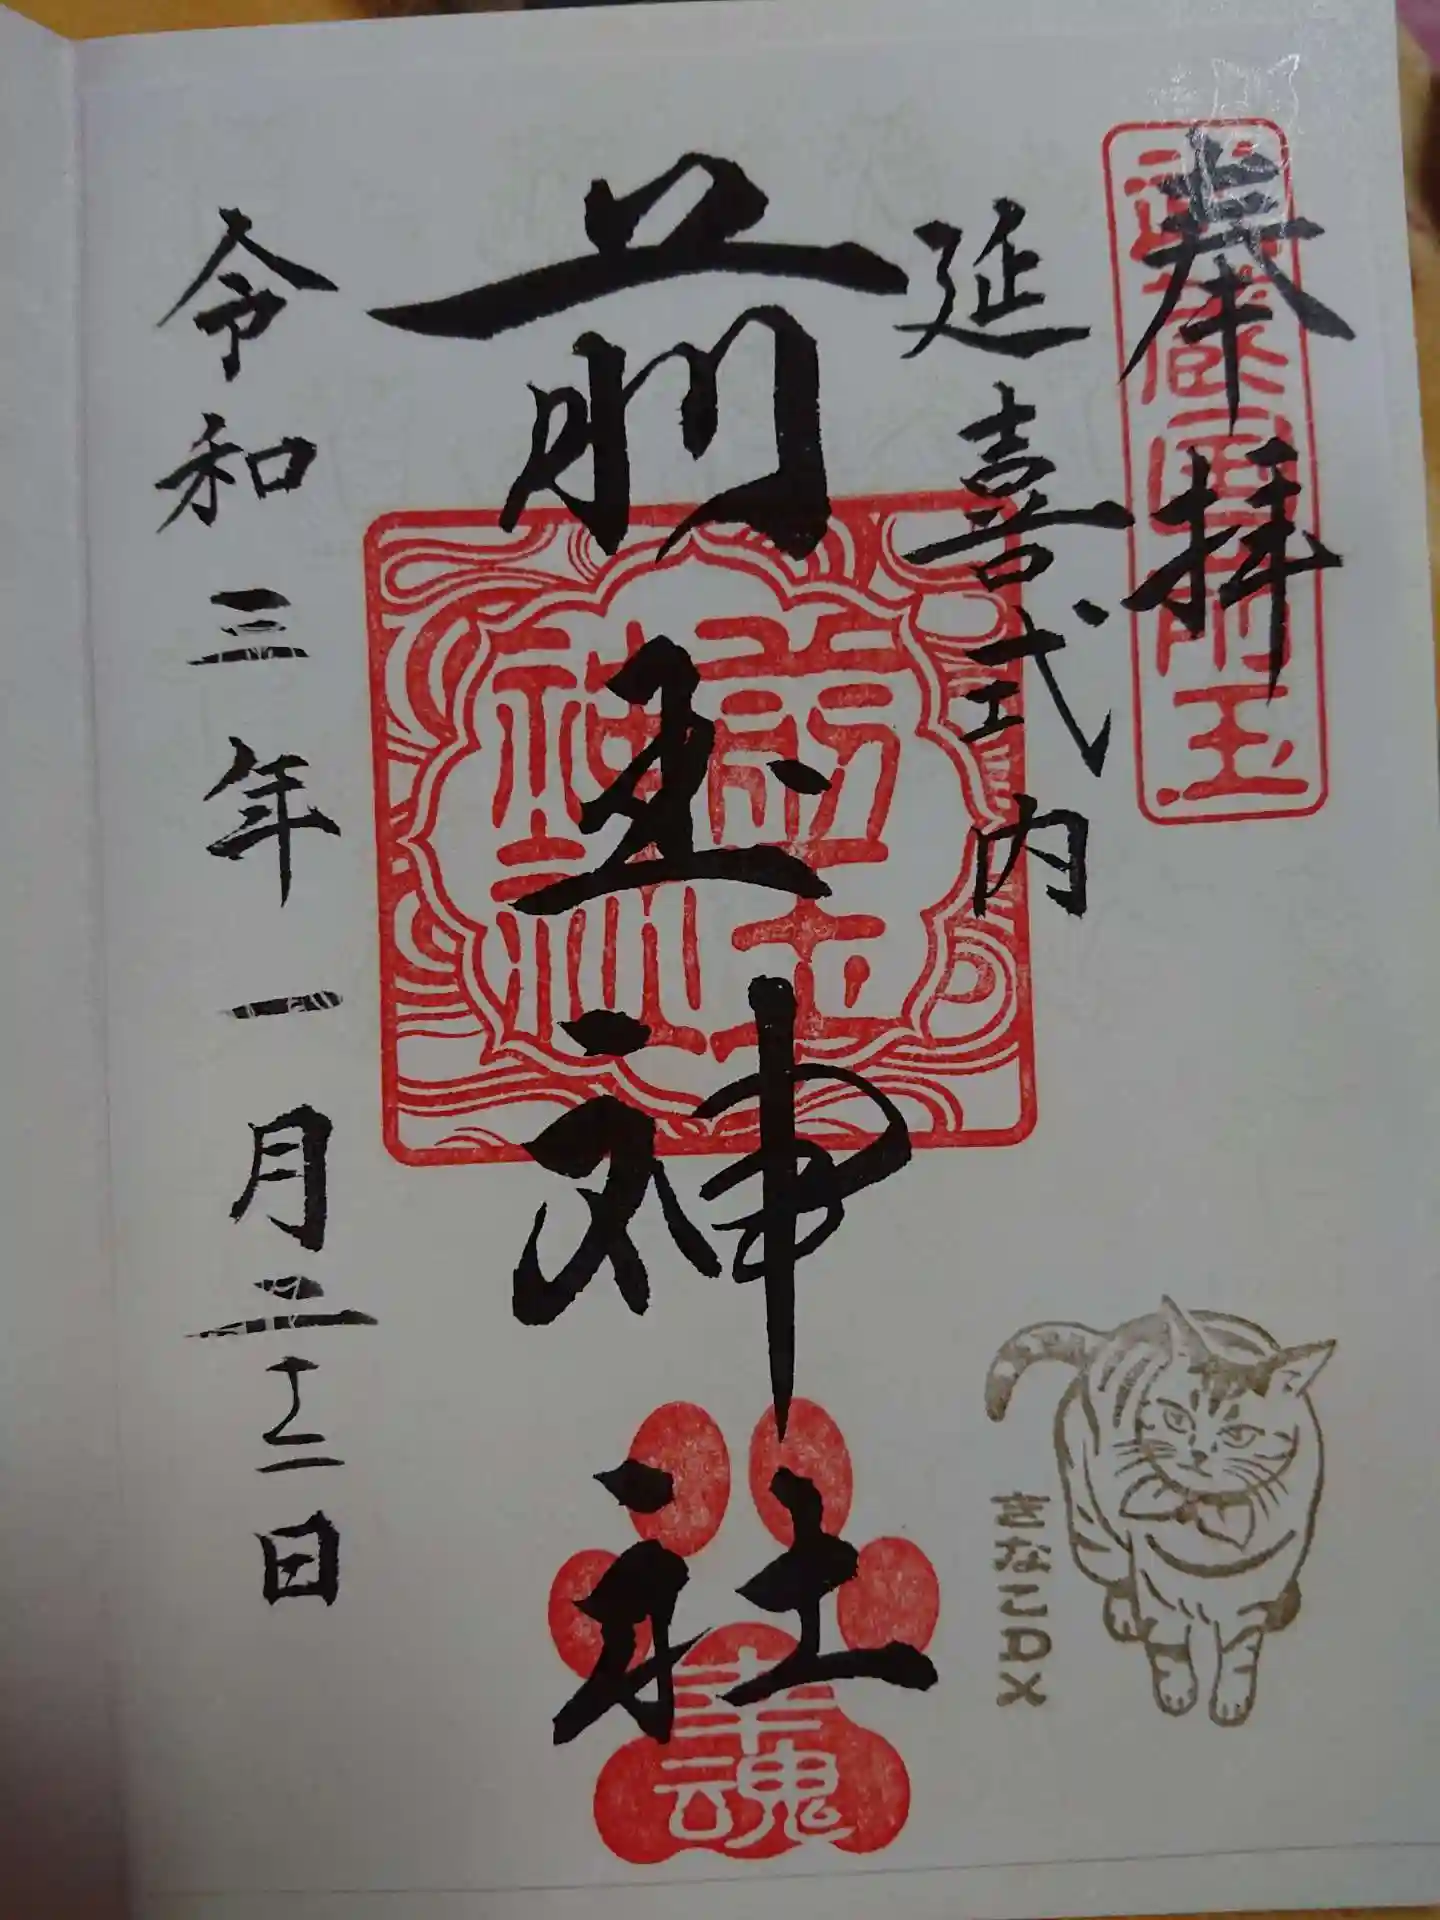 奉拝
武蔵国前玉
延喜式内
前玉神社
前玉
神社
幸魂
令和三年一月二十二日
きなこDX